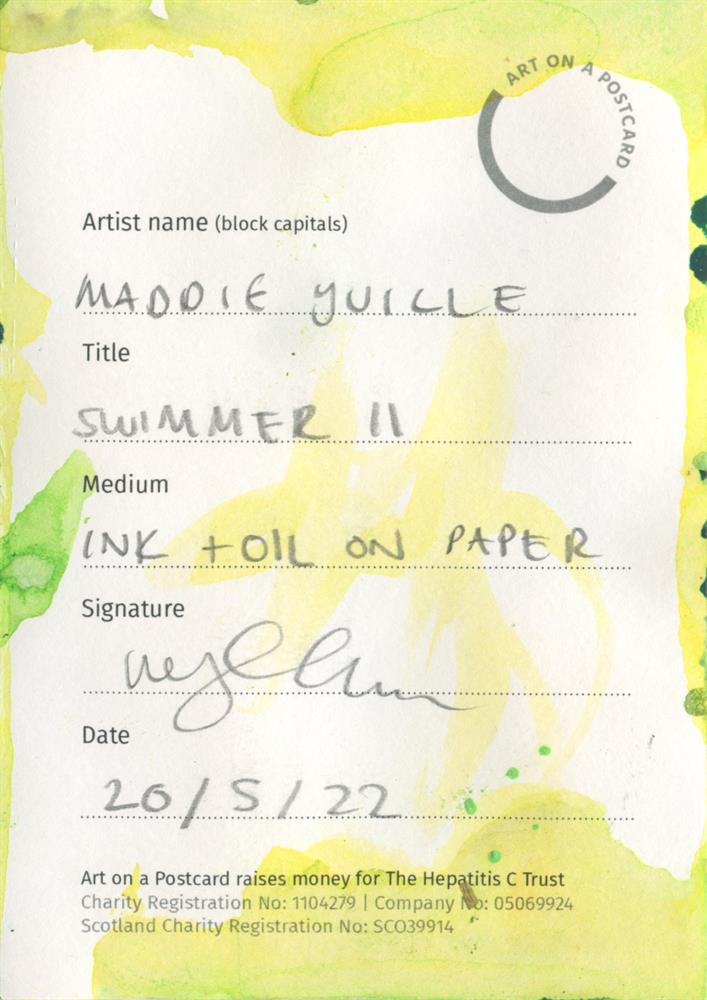 ART ON A POSTCARD
Artist name (block capitals)
MADDIE YUILLE
Title
SWIMMER II
Medium
INK + OIL ON PAPER
Signature
Date
20/5/22
Art on a Postcard raises money for The Hepatitis C Trust
Charity Registration No: 1104279 | Company No: 05069924
Scotland Charity Registration No: SCO39914